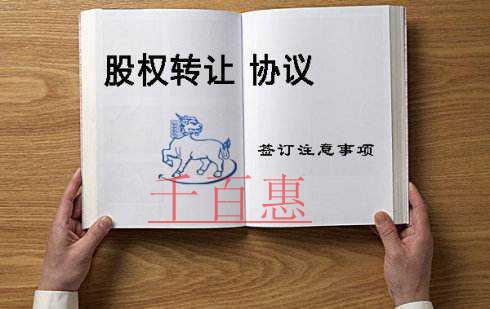 股权转让 协议
签订注意事项
千百惠